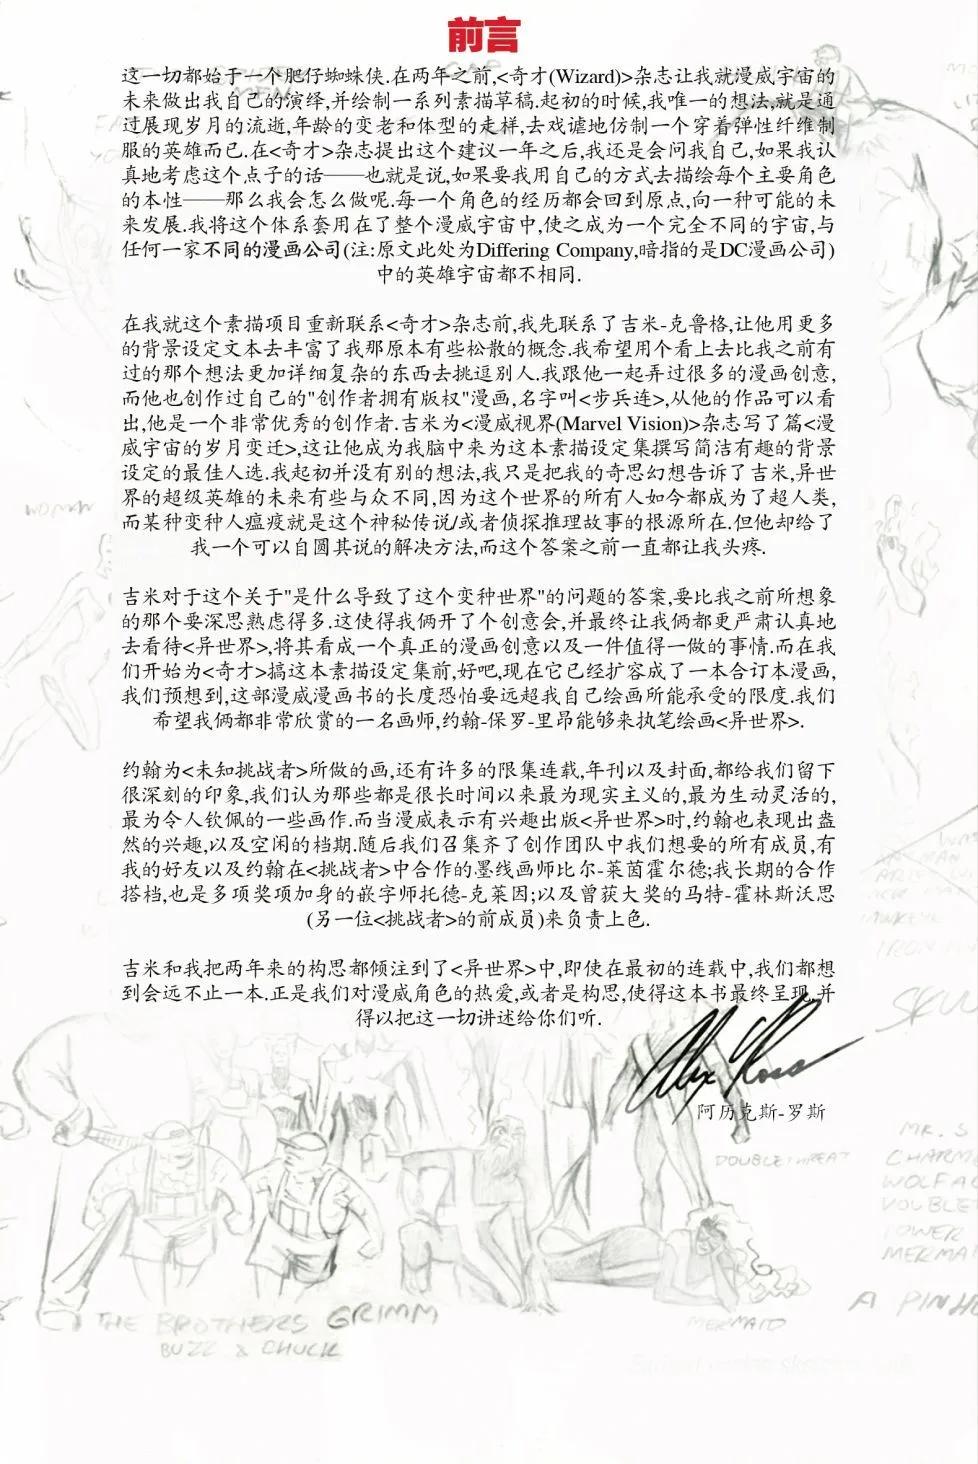 前言
这一切都始于一个肥仔蜘蛛侠.在两年之前,<奇才(Wizard)>杂志让我就漫威宇宙的
未来做出我自己的演绎,并绘制一系列素描草稿.起初的时候,我唯一的想法,就是通
过展现岁月的流逝,年龄的变老和体型的走样,去戏谑地仿制一个穿着弹性纤维制
服的英雄而已.在<奇才>杂志提出这个建议一年之后,我还是会问我自己,如果我认
真地考虑这个点子的话——也就是说,如果要我用自己的方式去描绘每个主要角色
的本性——那么我会怎么做呢.每一个角色的经历都会回到原点,向一种可能的未
来发展.我将这个体系套用在了整个漫威宇宙中,使之成为一个完全不同的宇宙,与
任何一家不同的漫画公司(注:原文此处为Differing Company,暗指的是DC漫画公司)
中的英雄宇宙都不相同.
在我就这个素描项目重新联系<奇才>杂志前,我先联系了吉米-克鲁格,让他用更多
的背景设定文本去丰富了我那原本有些松散的概念.我希望用个看上去比我之前有
过的那个想法更加详细复杂的东西去挑逗别人.我跟他一起弄过很多的漫画创意,
而他也创作过自己的"创作者拥有版权"漫画,名字叫<步兵连>,从他的作品可以看
出,他是一个非常优秀的创作者.吉米为<漫威视界(Marvel Vision)>杂志写了篇<漫
威宇宙的岁月变迁>,这让他成为我脑中来为这本素描设定集撰写简洁有趣的背景
设定的最佳人选.我起初并没有别的想法,我只是把我的奇思幻想告诉了吉米,异世
界的超级英雄的未来有些与众不同,因为这个世界的所有人如今都成为了超人类,
而某种变种人瘟疫就是这个神秘传说/或者侦探推理故事的根源所在.但他却给了
我一个可以自圆其说的解决方法,而这个答案之前一直都让我头疼.
吉米对于这个关于"是什么导致了这个变种世界"的问题的答案,要比我之前所想象
的那个要深思熟虑得多.这使得我俩开了个创意会,并最终让我俩都更严肃认真地
去看待<异世界>,将其看成一个真正的漫画创意以及一件值得一做的事情.而在我
们开始为<奇才>搞这本素描设定集前,好吧,现在它已经扩容成了一本合订本漫画,
我们预想到,这部漫威漫画书的长度恐怕要远超我自己绘画所能承受的限度.我们
希望我俩都非常欣赏的一名画师,约翰-保罗-里昂能够来执笔绘画<异世界>.
约翰为<未知挑战者>所做的画,还有许多的限集连载,年刊以及封面,都给我们留下
很深刻的印象,我们认为那些都是很长时间以来最为现实主义的,最为生动灵活的,
最为令人钦佩的一些画作.而当漫威表示有兴趣出版<异世界>时,约翰也表现出盎
然的兴趣,以及空闲的档期.随后我们召集齐了创作团队中我们想要的所有成员,有
我的好友以及约翰在<挑战者>中合作的墨线画师比尔-莱茵霍尔德;我长期的合作
搭档,也是多项奖项加身的嵌字师托德-克莱因;以及曾获大奖的马特-霍林斯沃思
(另一位<挑战者>的前成员)来负责上色.
吉米和我把两年来的构思都倾注到了<异世界>中,即使在最初的连载中,我们都想
到会远不止一本.正是我们对漫威角色的热爱,或者是构思,使得这本书最终呈现,并
得以把这一切讲述给你们听.
Alex Ross
阿历克斯-罗斯
WOMAN
SKU
DOUBLETHREAT
MR. S
CHARM
WOLF
DOUBLE
POWER
MERMAI
A PINH
THE BROTHERS GRIMM
BUZZ & CHUCK
MERMAID